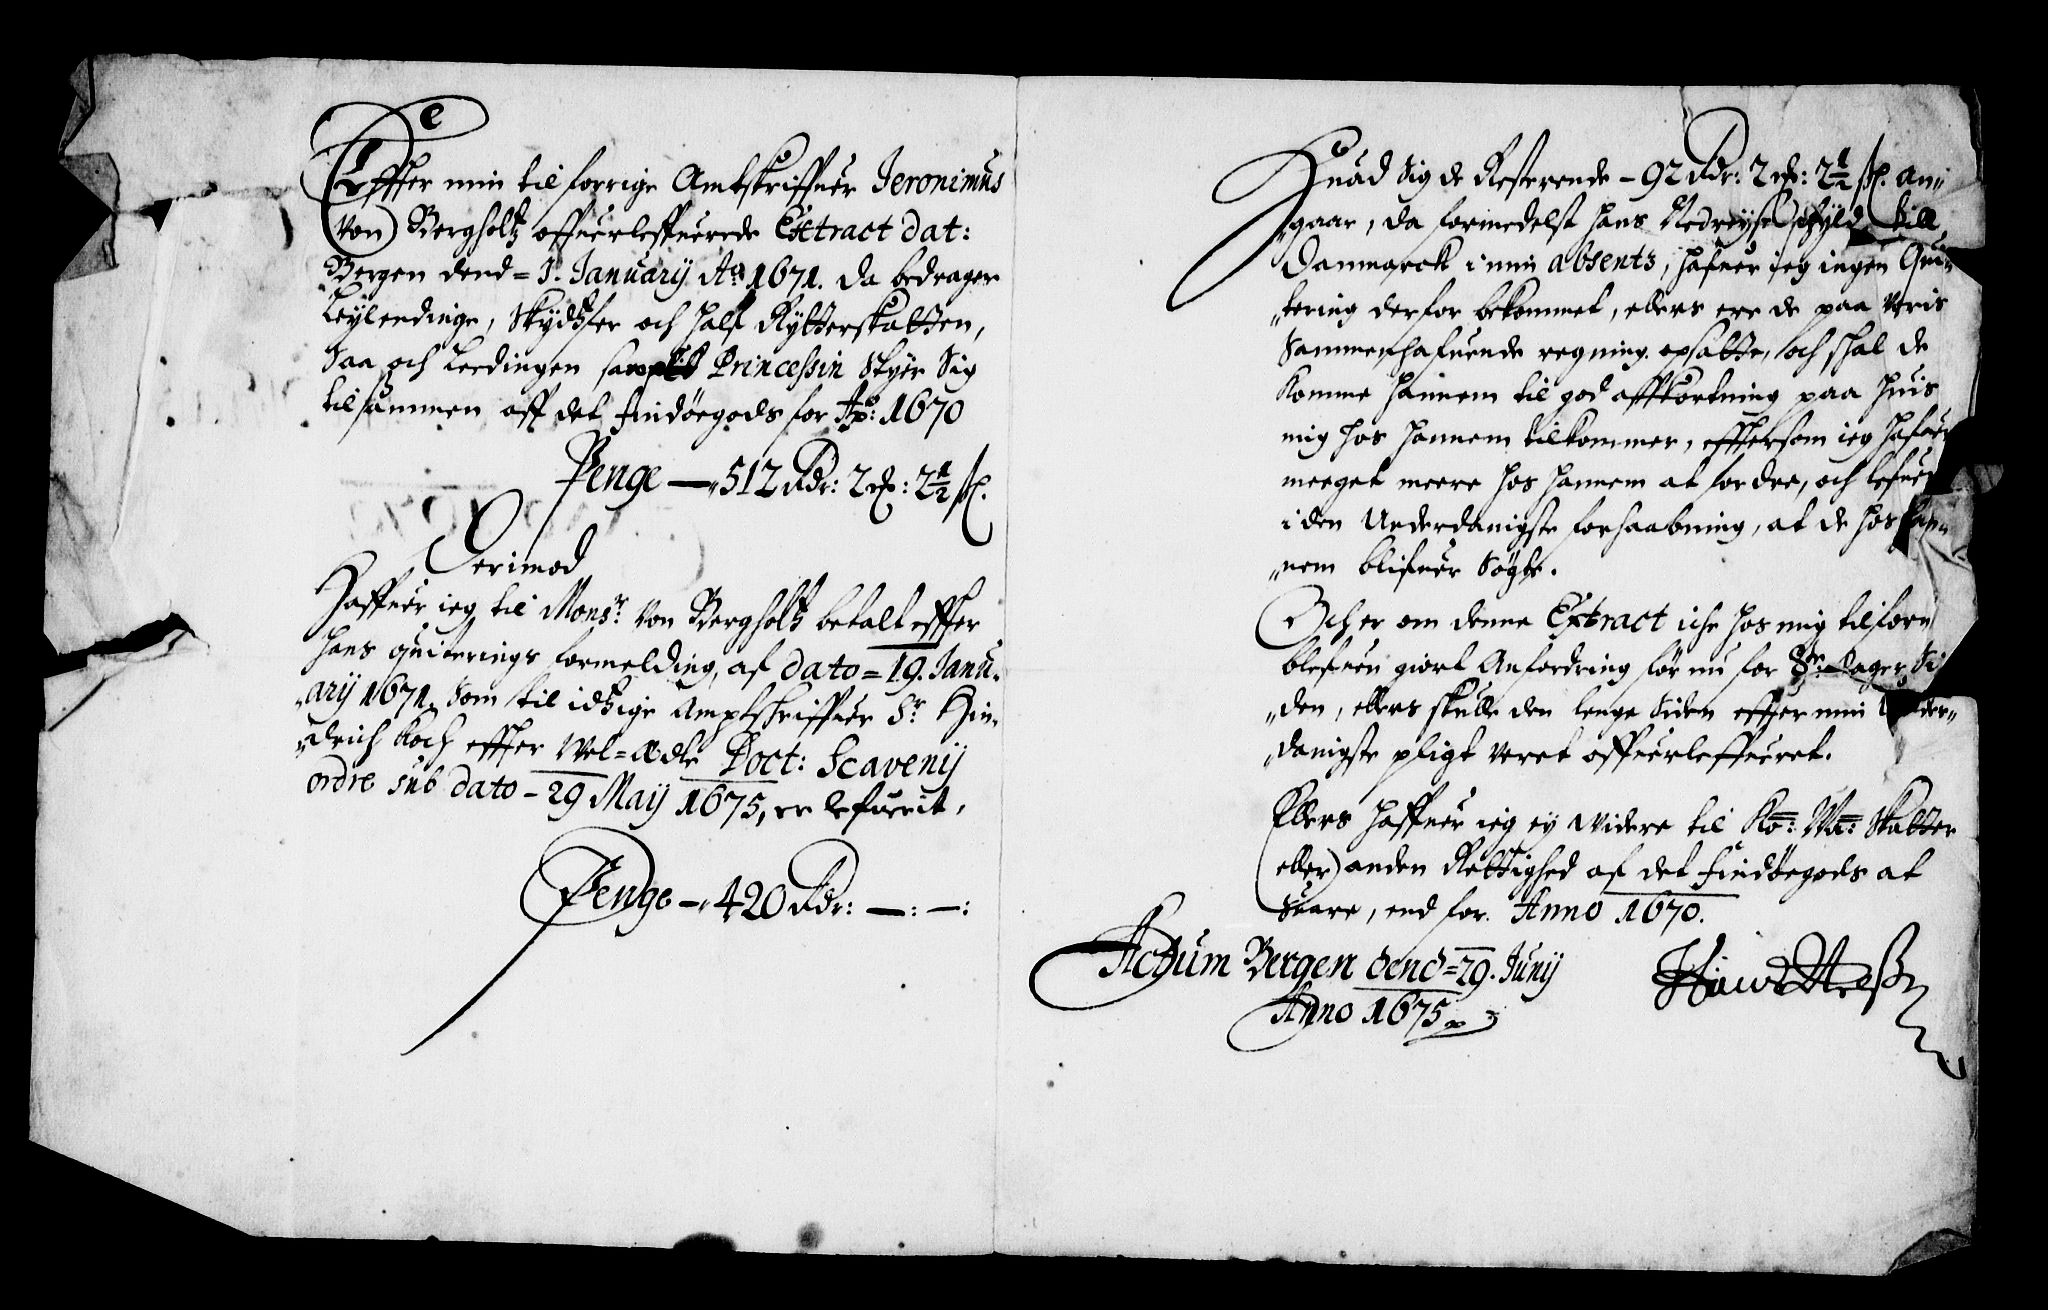 e
Effter min til forrige Amtskriffuer Jeronimus
von Bergholtz offuerleffuerede Extract dat:
Bergen dend = 1. January Ao 1671. da bedrager
Leylendinge, Skydtzfer och half Rytterskatten,
Saa och Leedingen sampt Princessin Styer Sig
tilsammen aff det findöegods for Ao: 1670
Penge — 512 Rdr: 2 mk: 2 1/2 ß.
Derimod
Haffuer ieg til Monsr: von Bergholtz betalt effter
hans quiterings formelding, af dato = 19. Janu„
„arij 1671, Som til idtzige Amptschriffuer Sr Hin„
„drich Koch effter Wel=ædle Doct: Scavenij
ordre sub dato – 29 Maij 1675, er lefuerit,
Penge – 420 Rdr: — : — :
Huad Sig de Resterende – 92 Rdr: 2 mk: 2 1/2 ß. an„
„gaar, da formedelst hans Nedreyse till
Danmarck i min absents, hafuer ieg ingen Qui„
„tering derfor bekommet, ellers ere de paa voris
Sammenhafuende regning opsatte, och skal de
komme hannem til god affkortning paa huis
mig hos hannem tilkommer, effthersom ieg hafuer
meeget meere hos hannem at fordre, och lefuer
i den Underdanigste forhaabning, at de hos han„
„nem blifuer Søgte.
Och er om denne Extract iche hos mig tilforn
blefuen giort Anfordring før nu for 8te dager Si„
„den, ellers skulle den lenge siden effter min Under„
„danigste pligt veret offuerleffueret.
Ellers haffuer ieg ey widere til Ko: Ma: Skatter
eller anden Rettighed af det findöegods at
Suare, end for. Anno 1670.
Actum Bergen dend = 29. Junij
Anno 1675